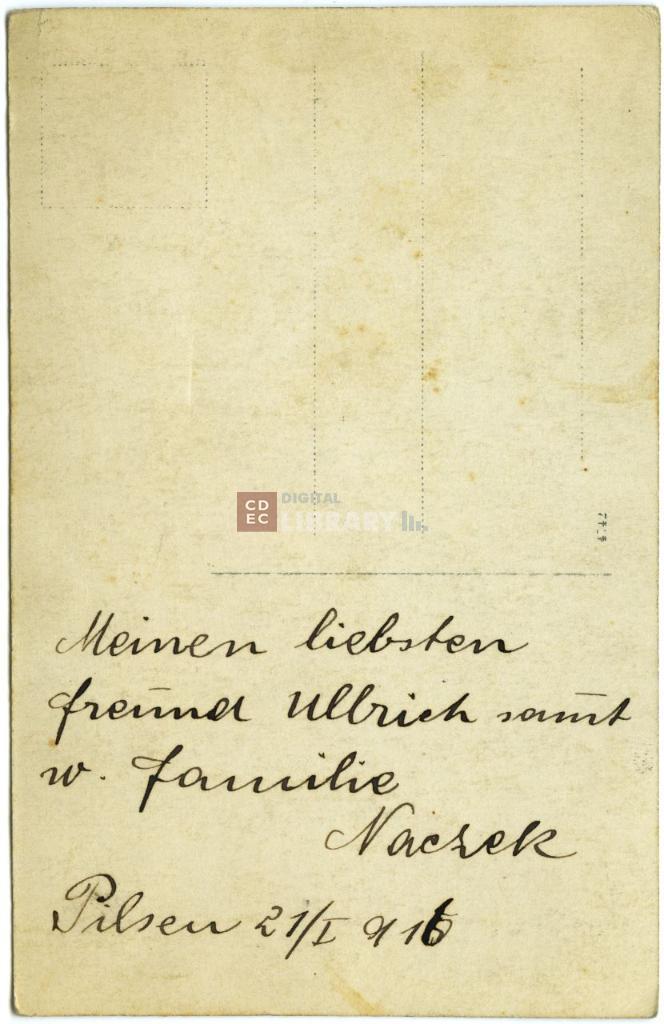 CD
EC
DIGITAL
LIBRARY
Meinen liebsten
freund Ullrich samt
w. familie
Naczek
Pilsen 21/I 916